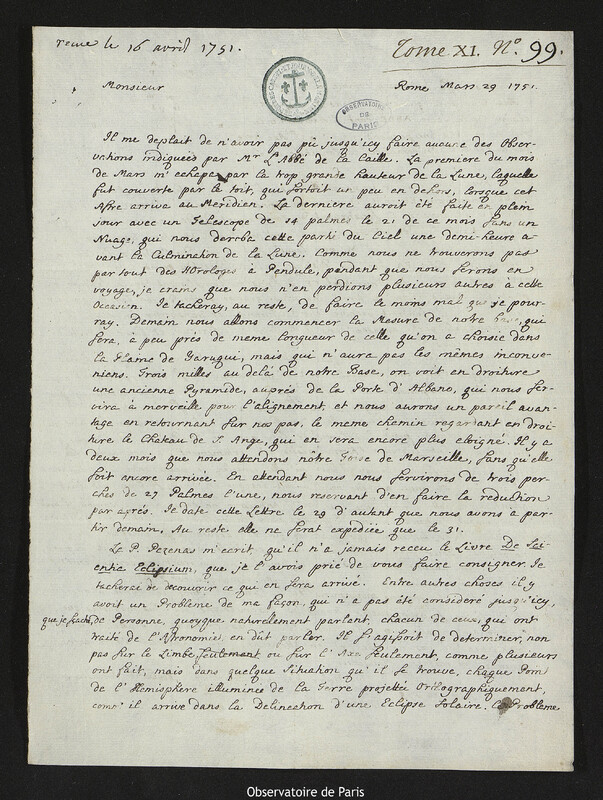 recue le 16 avril 1751.
Tome XI. N.º 99.
Monsieur
Rome Mars 29 1751.
OBSERVATOIRE
DE
PARIS
Il me deplait de n'avoir pas pû jusqu'icy faire aucune des Obser-
vations indiquées par Mr L'Abbé de la Caille. La premiere du mois
de Mars m'echapa par la trop grande hauteur de la Lune, laquelle
fut couverte par le toit, qui sortoit un peu en dehors, lorsque cet
Astre arriva au Meridien. La derniere auroit été faite en plein
jour avec un Telescope de 14 palmes le 21 de ce mois sans un
Nuage, qui nous deroba cette partie du Ciel une demi-heure a-
vant la Culmination de la Lune. Comme nous ne trouverons pas
par tout des Horologes à Pendule, pendant que nous serons en
voyage, je crains que nous n'en perdions plusieurs autres à cette
Occasion. Je tacheray, au reste, de faire le moins mal que je pour-
ray. Demain nous allons commencer la Mesure de notre base, qui
sera, à peu près de meme longueur de celle qu'on a choisie dans
la Plame de Yaruqui, mais qui n'aura pas les mêmes inconve-
niens. Trois milles au delà de notre Base, on voit en droiture
une ancienne Pyramide, auprès de la Porte d'Albano, qui nous ser-
vira à merveille pour l'alignement, et nous aurons un pareil avan-
tage en retournant sur nos pas, le meme chemin regardant en Droi-
ture le Chateau de S. Ange, qui en sera encore plus eloigné. Il y a
deux mois que nous attendons nôtre Toise de Marseille, sans qu'elle
soit encore arrivée. En attendant nous nous servirons de trois per-
ches de 27 Palmes l'une, nous reservant d'en faire la reduction
par après. Je date cette Lettre le 29 d'autent que nous avons a par-
tir demain, Au reste elle ne serat expediée que le 31.
Le P. Pezenas m'ecrit, qu'il n'a jamais receu le Livre De Sci-
entia Eclipsium, que je l'avois prié de vous faire consigner. Je
tacherai de decouvrir ce qui en sera arrivé. Entre autres choses il y
avoit un Problème de ma façon, qui n'a pas été consideré jusqu'icy,
que je sache, de Personne, quoyque naturellement parlent, chacun de ceux, qui ont
traité de l'Astronomie, en dût parler. Il s'agissoit de determiner, non
pas sur le Limbe seulement, ou sur l'Axe seulement, comme plusieurs
ont fait, mais dans quelque situation qu'il se trouve, chaque Point
de l'Hemisphere illuminée de la Terre projettée Orthographiquement,
come il arrive dans la Delineation d'une Eclipse Solaire. Ce Problème
Observatoire de Paris